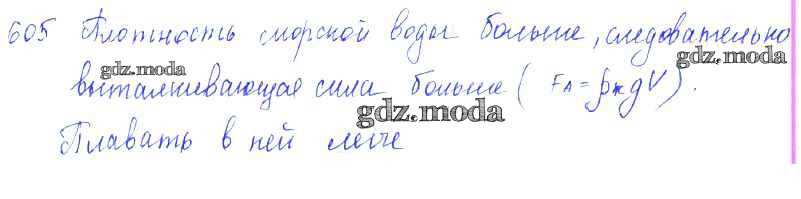 605 Плотность морской воды больше, следовательно
gdz.moda
gdz.moda
выталкивающая сила больше ( FA = ρжgV ).
gdz.moda
Плавать в ней легче
gdz.moda